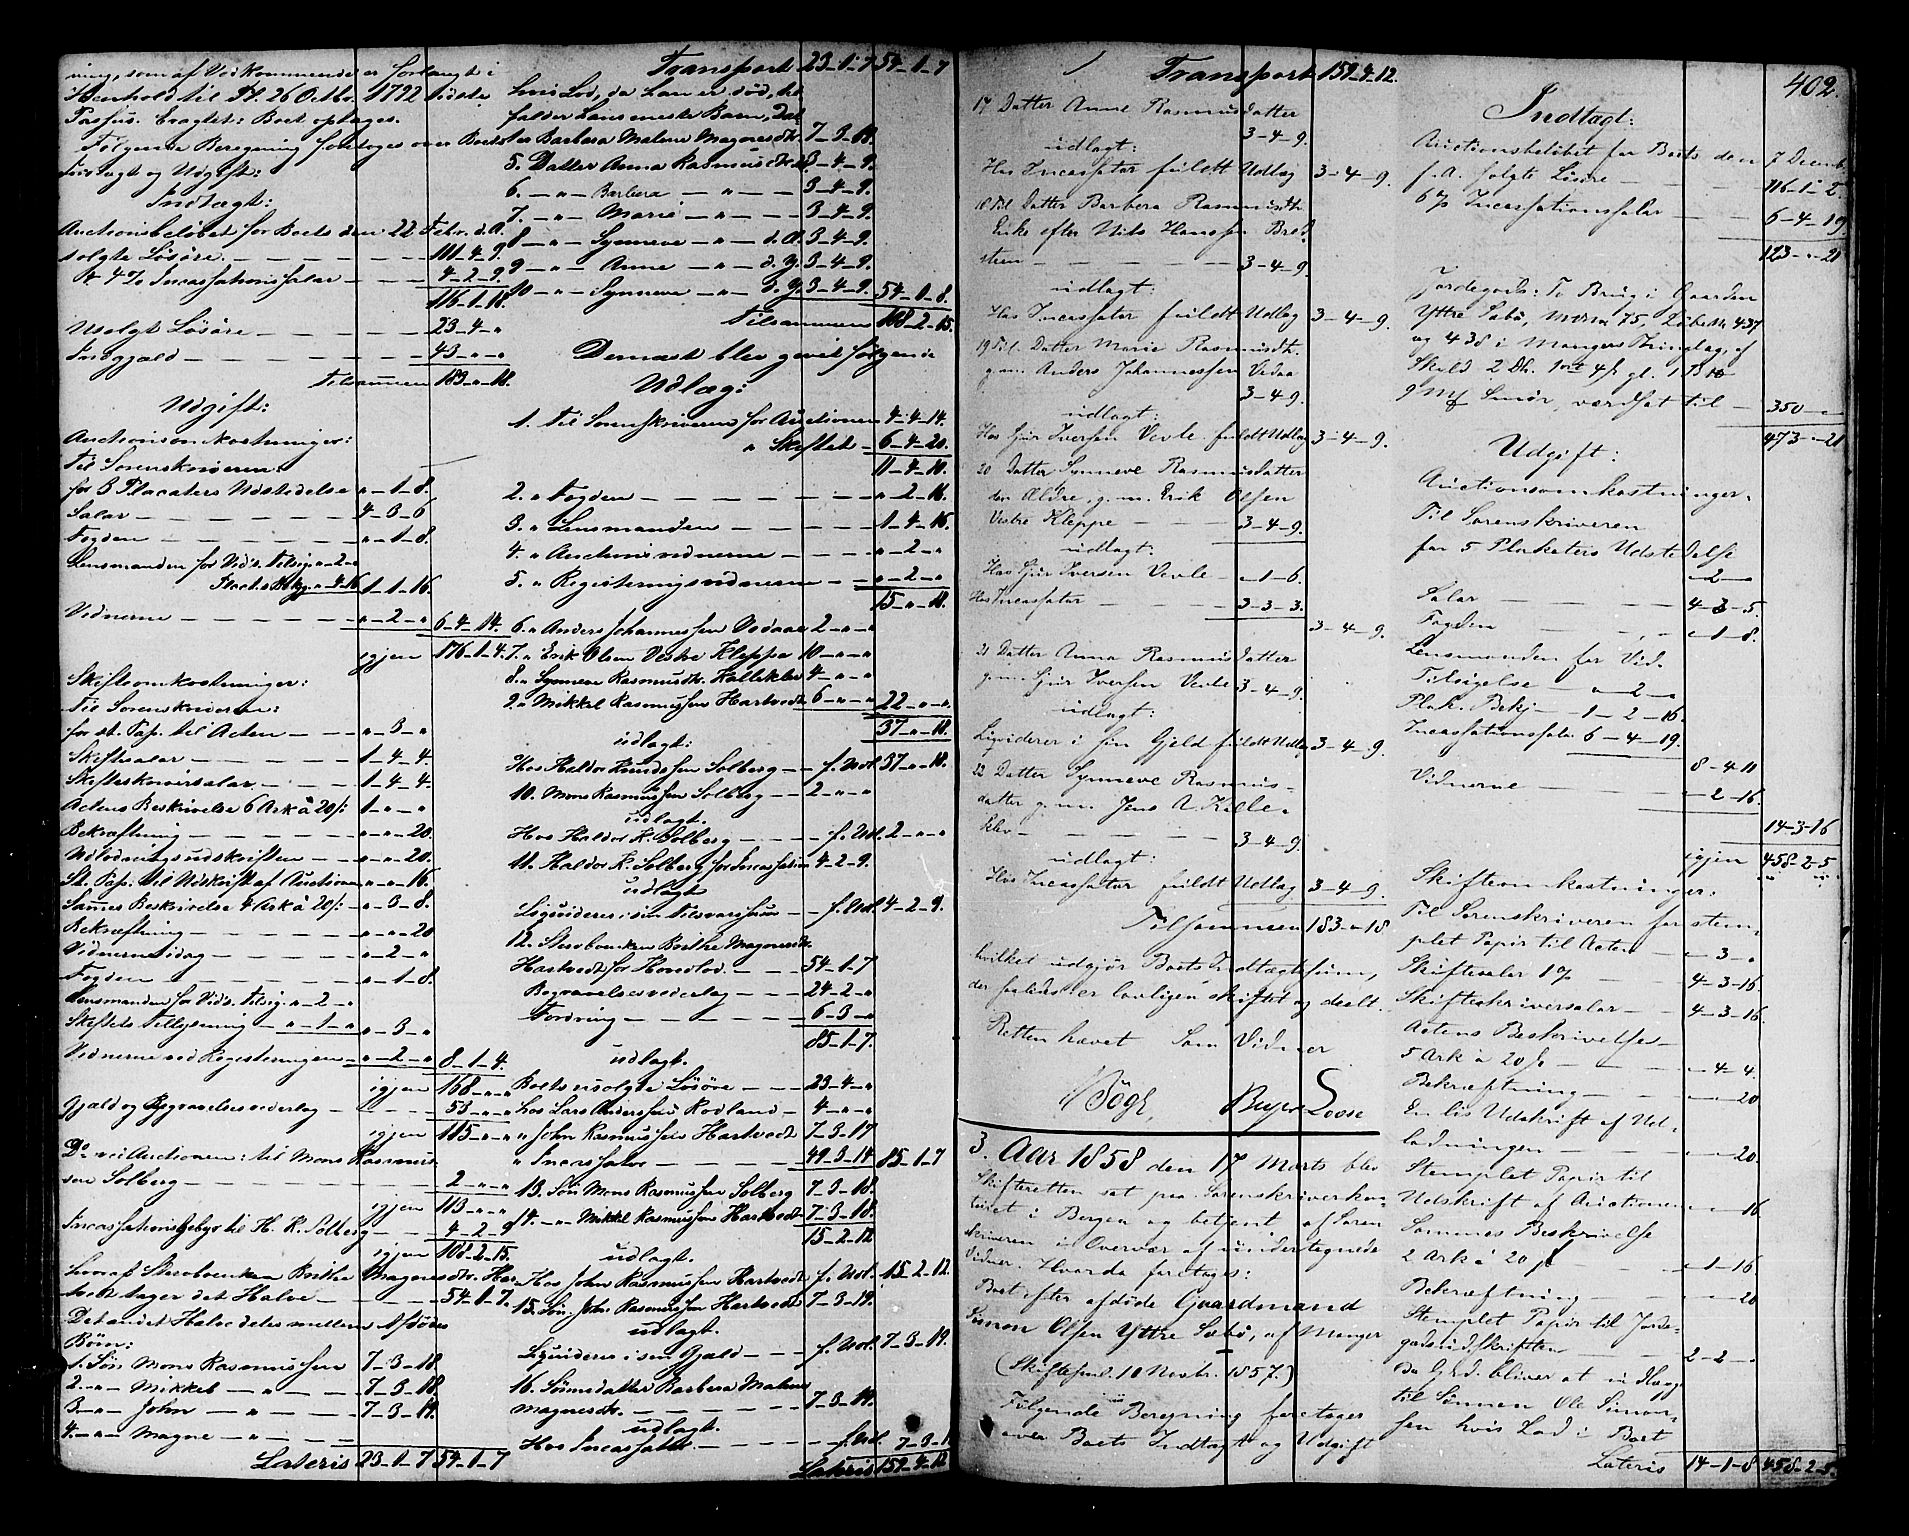 ning, som af Vedkommende er forlangt i
Henhold til Pl. 26 Octbr. 1772 sidste
Passus. Eragtet: Boet optages.
Følgende Beregning foretoges over Boets
Indtægt og Udgift:
Indtægt:
Auctionsbeløbet for Boets den 22 Febr. d. A.
solgte Løsøre — — — 111-4-9.
4 % Incassationssalar — — — 4-2-9.
116-1-18.
Usolgt Løsøre — — — 23-4-"
Indgjæld — — — 43-"-"
Tilsammen 183-"-18.
Udgift:
Auctionsomkostninger:
Til Sorenskriveren:
for 3 Placaters Udstedelse "-1-8.
Salar — — — 4-3-6
Fogden — — — "-1-8.
Lensmanden for Vid. Tilsig. "-2-"
Placat. Bekj. "-4-16 1-1-16.
Vidnerne — — "-2-" 6-4-14.
igjen 176-1-4.
Skifteomkostninger:
Til Sorenskriveren:
for st. Pap. til Acten — — "-3-"
Skiftesalar — — — 1-4-4
Skifteskriversalar — — 1-4-4.
Actens Beskrivelse 6 Ark à 20/: 1-"-"
Bekræftning — — — "-"-20.
Udlodningsudskriften — — "-"-20.
St. Pap. til Udskrift af Auction "-"-16.
Sammes Beskrivelse 4 Ark à 20/: "-3-8.
Bekræftning — — — "-"-20
Vidnerne idag — — "-2-"
Fogden — — — "-1-8.
Lensmanden for Vid. Tilsig. "-2-"
Skiftets Tillysning — "-1-" "-3-"
Vidnerne ved Registeringen — "-2-" 8-1-4.
igjen 168-"-"
Gjæld og Begravelsesvederlag — — 53-"-"
igjen 115-"-"
Do. ved Auctionen: til Mons Rasmus-
sen Solberg — — — 2-"-"
igjen 113-"-"
Incassationsgebyr til H. K. Solberg — 4-2-9
igjen 108-2-15.
hvoraf Sterboenken Brithe Magnesdtr. Har-
tvedt tager det Halve — — — 54-1-7.
Det andet Halve deles mellem Afdødes
Børn:
1. Søn Mons Rasmussen 7-3-18.
2. "- Mikkel — " — — 7-3-18
3. "- John — " — — 7-3-18.
4. "- Magne — " — —
Lateris 23-1-7 54-1-7
Transport 23-1-7 54-1-7
hvis Lod, da han er død, til-
falder hans eneste Barn, Dat-
ter Barbara Malene Magnesdtr. 7-3-18.
5. Datter Anna Rasmusdtr. 3-4-9.
6. — " — Barbera — " — 3-4-9.
7. — " — Marie — " — 3-4-9.
8 — " — Synneve — " — d. Æ. 3-4-9.
9 — " — Anne — " — d. Y. 3-4-9.
10 — " — Synneve — " — d. Y. 3-4-9. 54-1-8.
Tilsammen 108-2-15.
Dernæst blev givet følgende
Udlæg:
1. Til Sorenskriveren for Auctionen 4-4-14.
" Skiftet — 6-4-20.
11-4-10.
2. " Fogden — — — "-2-16.
3. " Lensmanden — — — 1-4-16.
4. " Auctionsvidnerne — — "-2-"
5. " Registeringsvidnerne — "-2-"
15-"-18.
6. " Anders Johannessen Vedaae 2-"-"
7. " Erik Olsen Vestre Kleppe 10-"-"
8. " Synneve Rasmusdtr. Kalleklev 4-"-"
9. " Mikkel Rasmussen Hartvedt 6-"-" 22-"-"
37-"-18.
udlagt:
Hos Haldor Knudssen Solberg — f. Udl. 37-"-18.
10. Mons Rasmussen Solberg — 2-"-"
udlagt.
Hos Haldor K. Solberg — — f. Udl. 2-"-"
11. Haldor K. Solberg for Incassation 4-2-9.
udlagt
Ligviderer i sin Tilsvarssum — f. Udl. 4-2-9.
12. Sterboenken Brithe Magnesdtr.
Hartvedt for Hovedlod — — 54-1-7
Begravelsesvederlag — — 24-2-"
Fordring — — — 6-3-"
85-1-7.
udlagt.
Boets usolgte Løsøre — — 23-4-"
hos Lars Anderssen Rødland — 4-"-"
" John Rasmussen Hartvedt 7-3-17
" Incassator — — — 49-3-14 85-1-7
13. Søn Mons Rasmussen Solberg 7-3-18.
14. — " — Mikkel Rasmussen Hartvedt 7-3-18.
15-2-12
udlagt.
Hos John Rasmussen Hartvedt f. Udl. 15-2-12.
15. Søn John Rasmussen Hartvedt 7-3-19.
udlagt.
Liqviderer i sin Gjeld — — f. Udl. 7-3-19.
16. Sønnedatter Barbera Malene
Magnesdtr. — — — 7-3-19.
udlagt.
Hos Incassator — — f. Udl. 7-3-1
Lateris 159-4-12
Transport 159-4-12.
17 Datter Anne Rasmusdatter
3-4-9.
udlagt:
Hos Incassator fuldt Udlæg 3-4-9.
18 Til Datter Barbera Rasmusdtr.
Enke efter Nils Hanssen Bred-
steen — — — 3-4-9.
udlagt:
Hos Incassator fuldt Udlæg 3-4-9.
19 Til Datter Marie Rasmusdtr.
g. m. Anders Johannessen Vedaa
3-4-9.
udlagt:
Hos Sjur Iversen Vevle fuldt Udlæg 3-4-9.
20 Datter Synneve Rasmusdatter
den Ældre, g. m. Erik Olsen
Vestre Kleppe — — 3-4-9.
udlagt:
Hos Sjur Iversen Vevle — "-1-6.
Hos Incassator — — 3-3-3.
3-4-9.
21 Datter Anna Rasmusdatter
g. m. Sjur Iversen Vevle 3-4-9.
udlagt:
Liqviderer i sin Gjeld fuldt Udlæg 3-4-9.
22 Datter Synneve Rasmus-
datter g. m. Jens A. Kalle-
klev — — — 3-4-9.
udlagt:
Hos Incassator fuldt Udlæg 3-4-9.
Tilsammen 183-"-18
hvilket udgjør Boets Indtægtssum,
der saaledes er lovligen skiftet og deelt.
Retten hævet Som Vidner
Bøgh, Buyer Loose
3. Aar 1858 den 17 Marts blev
Skifteretten sat paa Sorenskriverkon-
toiret i Bergen og betjent af Soren-
skriveren i Overvær af undertegnede
Vidner. Hvorda foretages:
Boet efter afdøde Gaardmand
Simon Olsen Yttre Sæbø, af Manger
(Skifteseml. 10 Novbr. 1857.)
Følgende Beregning foretages
over Boets Indtægt og Udgift
402.
Indtægt:
Auctionsbeløbet for Boets den 7 Decemb.
f. A. solgte Løsøre — — — 116-1-2.
6 % Incassationssalar — — 6-4-19.
123-"-21
Jordegods: To Brug i Gaarden
Yttre Sæbø, Matr. No 75, Løbe No 437
og 438 i Mangers Thinglag, af
Skyld 2 Dlr. 1 ort 4 ß gl. 1 B 
9 M Smør, værdsat til — 350-"-"
473-"-21
Udgift:
Auctionsomkostninger.
Til Sorenskriveren
for 5 Plakaters Udstedelse
"-2-"
Salar — — — 4-3-5.
Fogden — — — "-1-8.
Lensmanden for Vid.
Tilsigelse — "-2-"
Plak. Bekj. — 1-2-16.
Incassationssalar 6-4-19.
8-4-11
Vidnerne — — "-2-16.
14-3-16
igjen 458-2-5
Skifteomkostninger:
Til Sorenskriveren for stem-
plet Papir til Acten — "-3-"
Skiftesalar 1 % — — 4-3-16.
Skifteskriversalar — — 4-3-16.
Actens Beskrivelse
5 Ark à 20 ß — — "-4-4.
Bekræftning — — "-"-20
En lis Udskrift af Ud-
lodningen — — "-"-20.
Stemplet Papir til
Udskrift af Auctionen "-"-16.
Sammes Beskrivelse
2 Ark à 20 ß — — "-1-16
Bekræftning — — "-"-20
Stemplet Papir til Jorde-
godsudskriften — — 2-2-"
bliver at udlægge
til Sønnen Ole Simon-
sen hvis Lod i Boet
Lateris 14-1-8 458-2-5